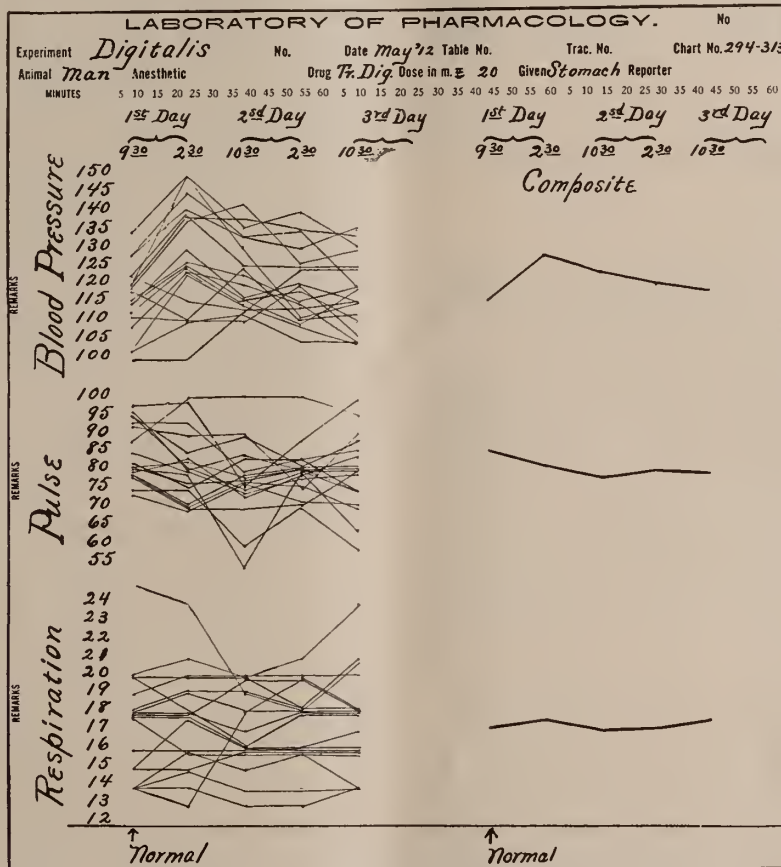 LABORATORY OF PHARMACOLOGY. No
Experiment Digitalis No. Date May '12 Table No. Trac. No. Chart No. 294-313
Animal Man Anesthetic Drug Tr. Dig. Dose in m. 20 Given Stomach Reporter
MINUTES 5 10 15 20 25 30 35 40 45 50 55 60 5 10 15 20 25 30 35 40 45 50 55 60 5 10 15 20 25 30 35 40 45 50 55 60
1st Day 2sd Day 3rd Day 1st Day 2sd Day 3rd Day
9 30 2 30 10 30 2 30 10 30 9 30 2 30 10 30 2 30 10 30
Composite
REMARKS
Blood Pressure
150
145
140
135
130
125
120
115
110
105
100
REMARKS
Pulse
100
95
90
85
80
75
70
65
60
55
REMARKS
Respiration
24
23
22
21
20
19
18
17
16
15
14
13
12
Normal Normal